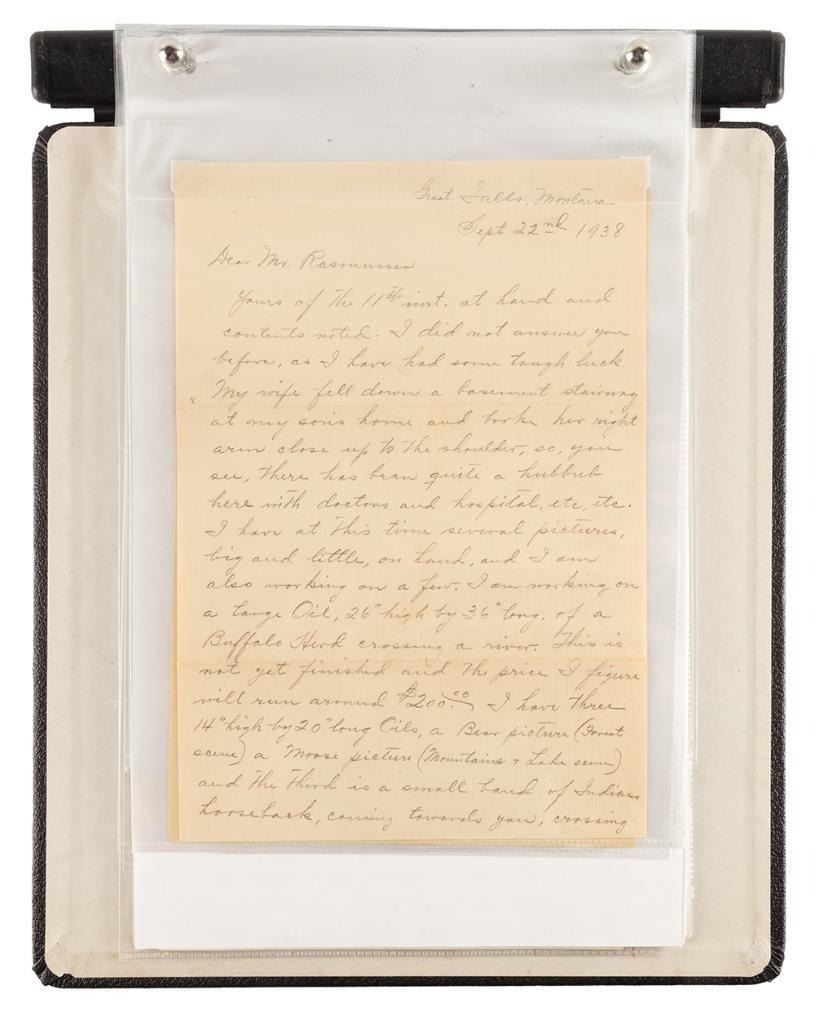 Great Falls, Montana
Sept 22nd 1938
Dear Mr. Rasmussen
Yours of the 11th inst. at hand and
contents noted. I did not answer you
before, as I have had some tough luck.
My wife fell down a basement stairway
at my son's home and broke her right
arm close up to the shoulder, so, you
see, there has been quite a hubbub
here with doctors and hospital, etc, etc.
I have at this time several pictures,
big and little, on hand, and I am
also working on a few. I am working on
a large Oil, 26" high by 36" long, of a
Buffalo Herd crossing a river. This is
not yet finished and the price I figure
will run around $200.00 I have three
14" high by 20" long Oils, a Bear picture (Forest
scene) a Moose picture (Mountains & Lake scene)
and the third is a small band of Indians
horseback, coming towards you, crossing